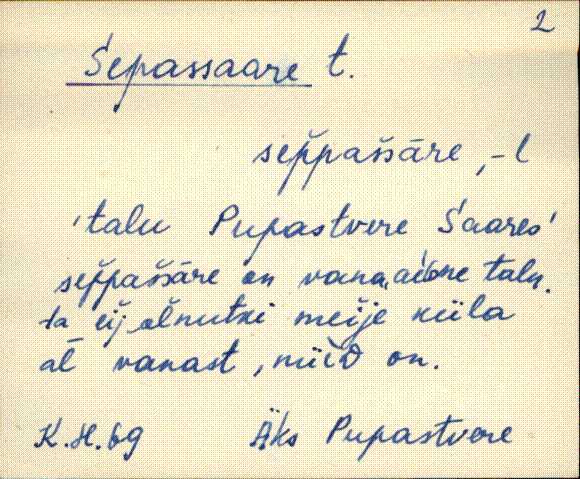 2
Sepassaare t.
sep̆pas̆sāre, -l
'talu Pupastvere Saares'
sep̆pas̆sāre on vana talu.
ta eij olnutki meije küla
al vanast, nüid on.
K.H.69 Äks Pupastvere